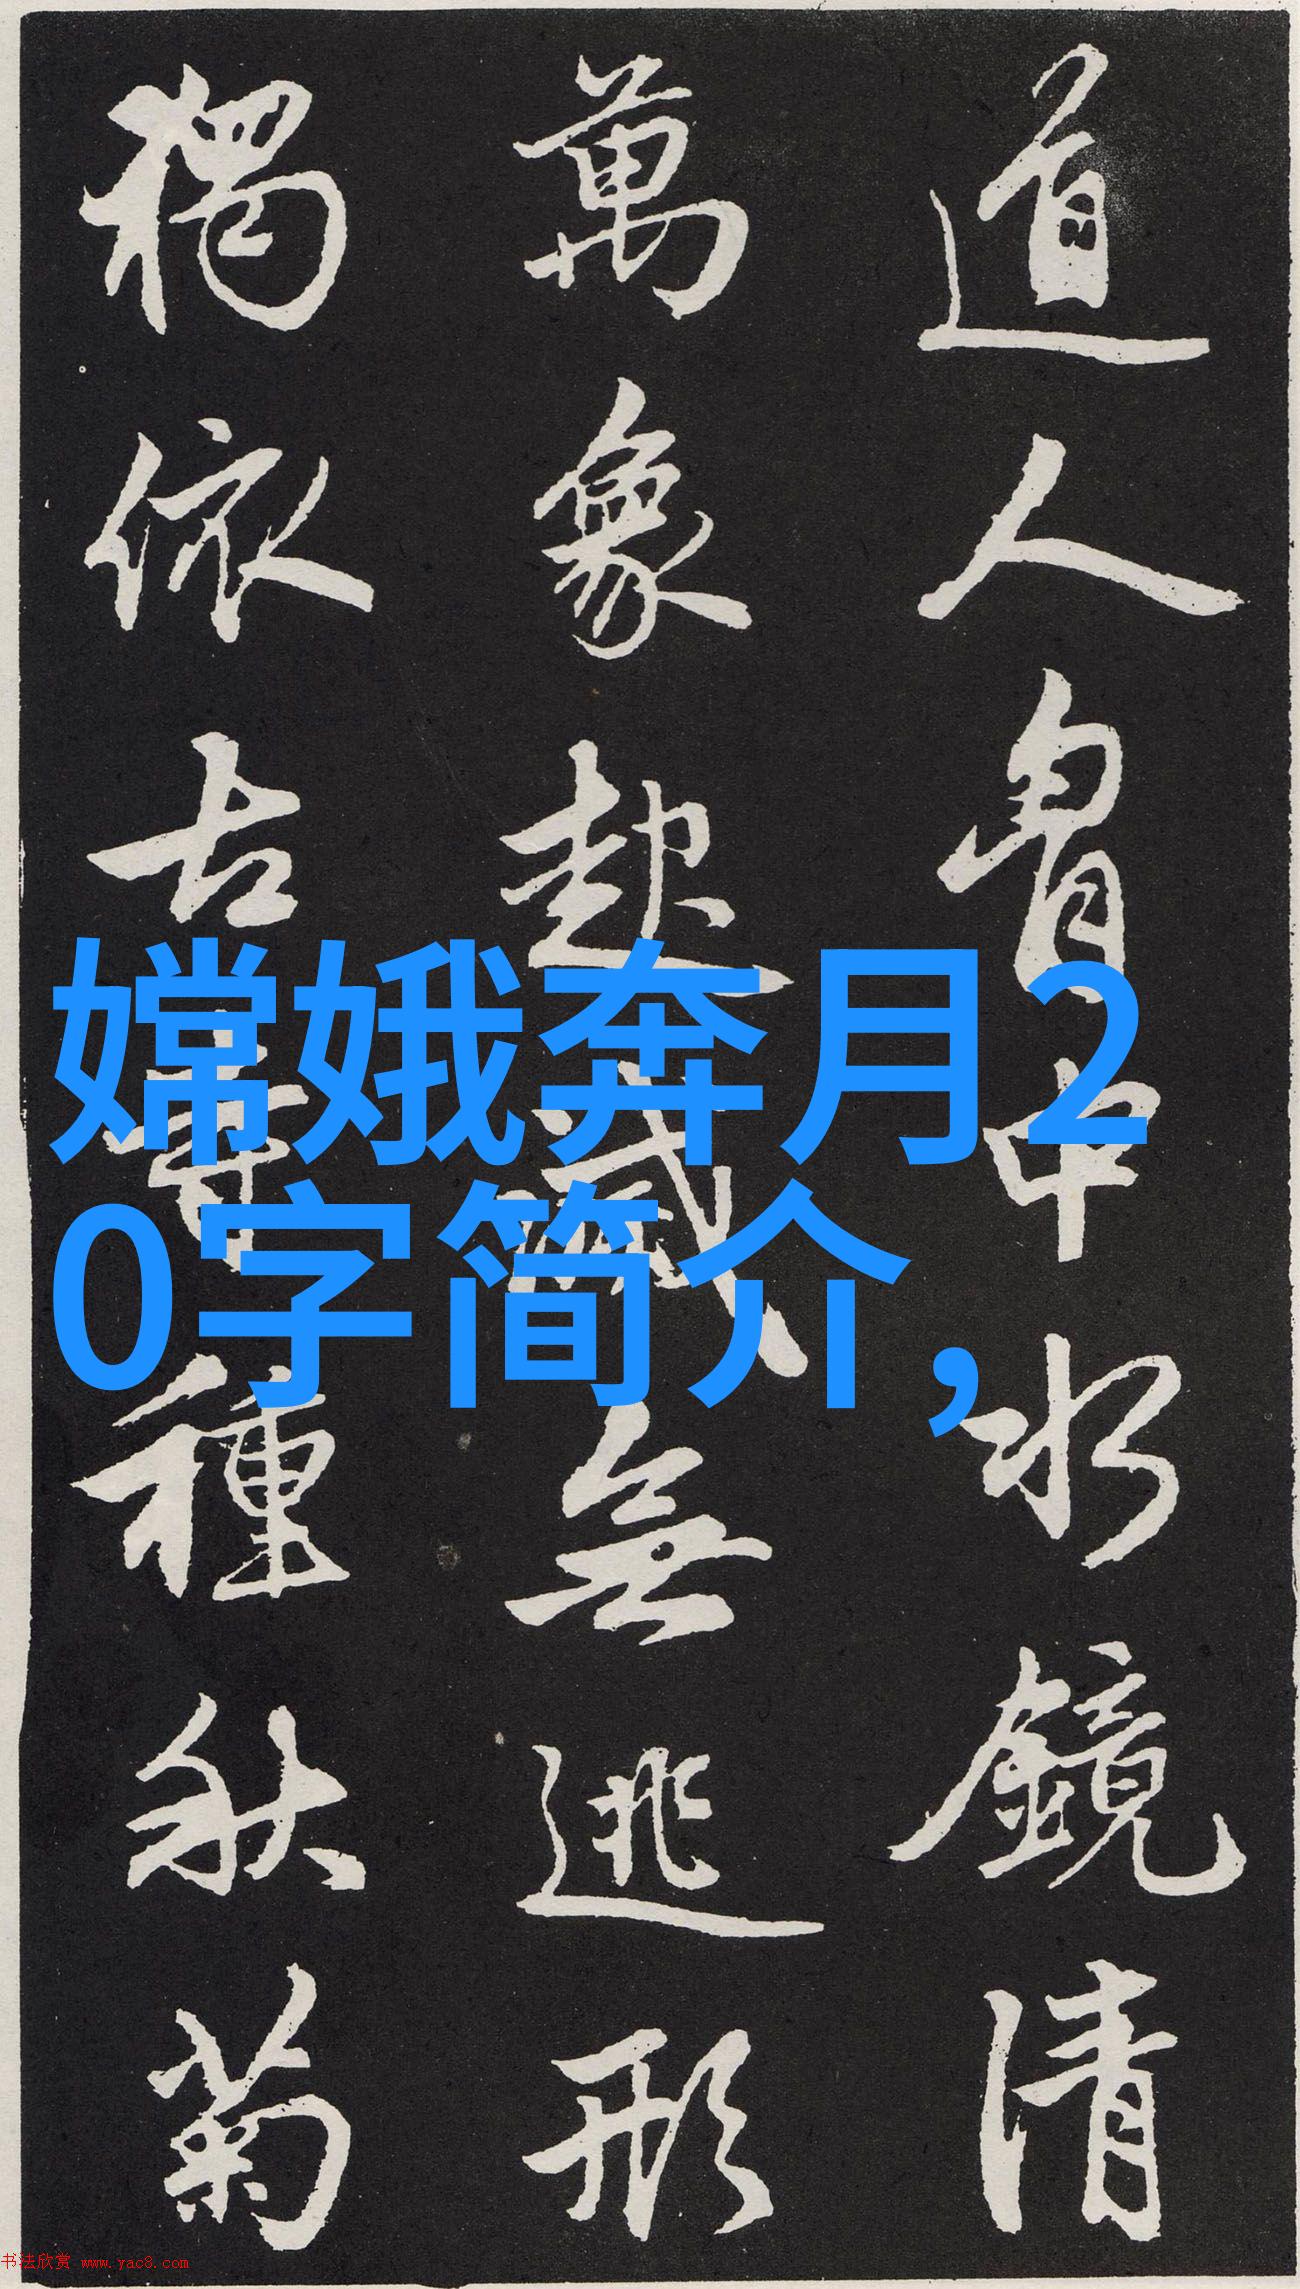 道人胷中水鏡清
萬象起滅無逃形
獨依古寺種秋菊
嫦娥奔月2
0字简介，
书法欣赏 www.yac8.com